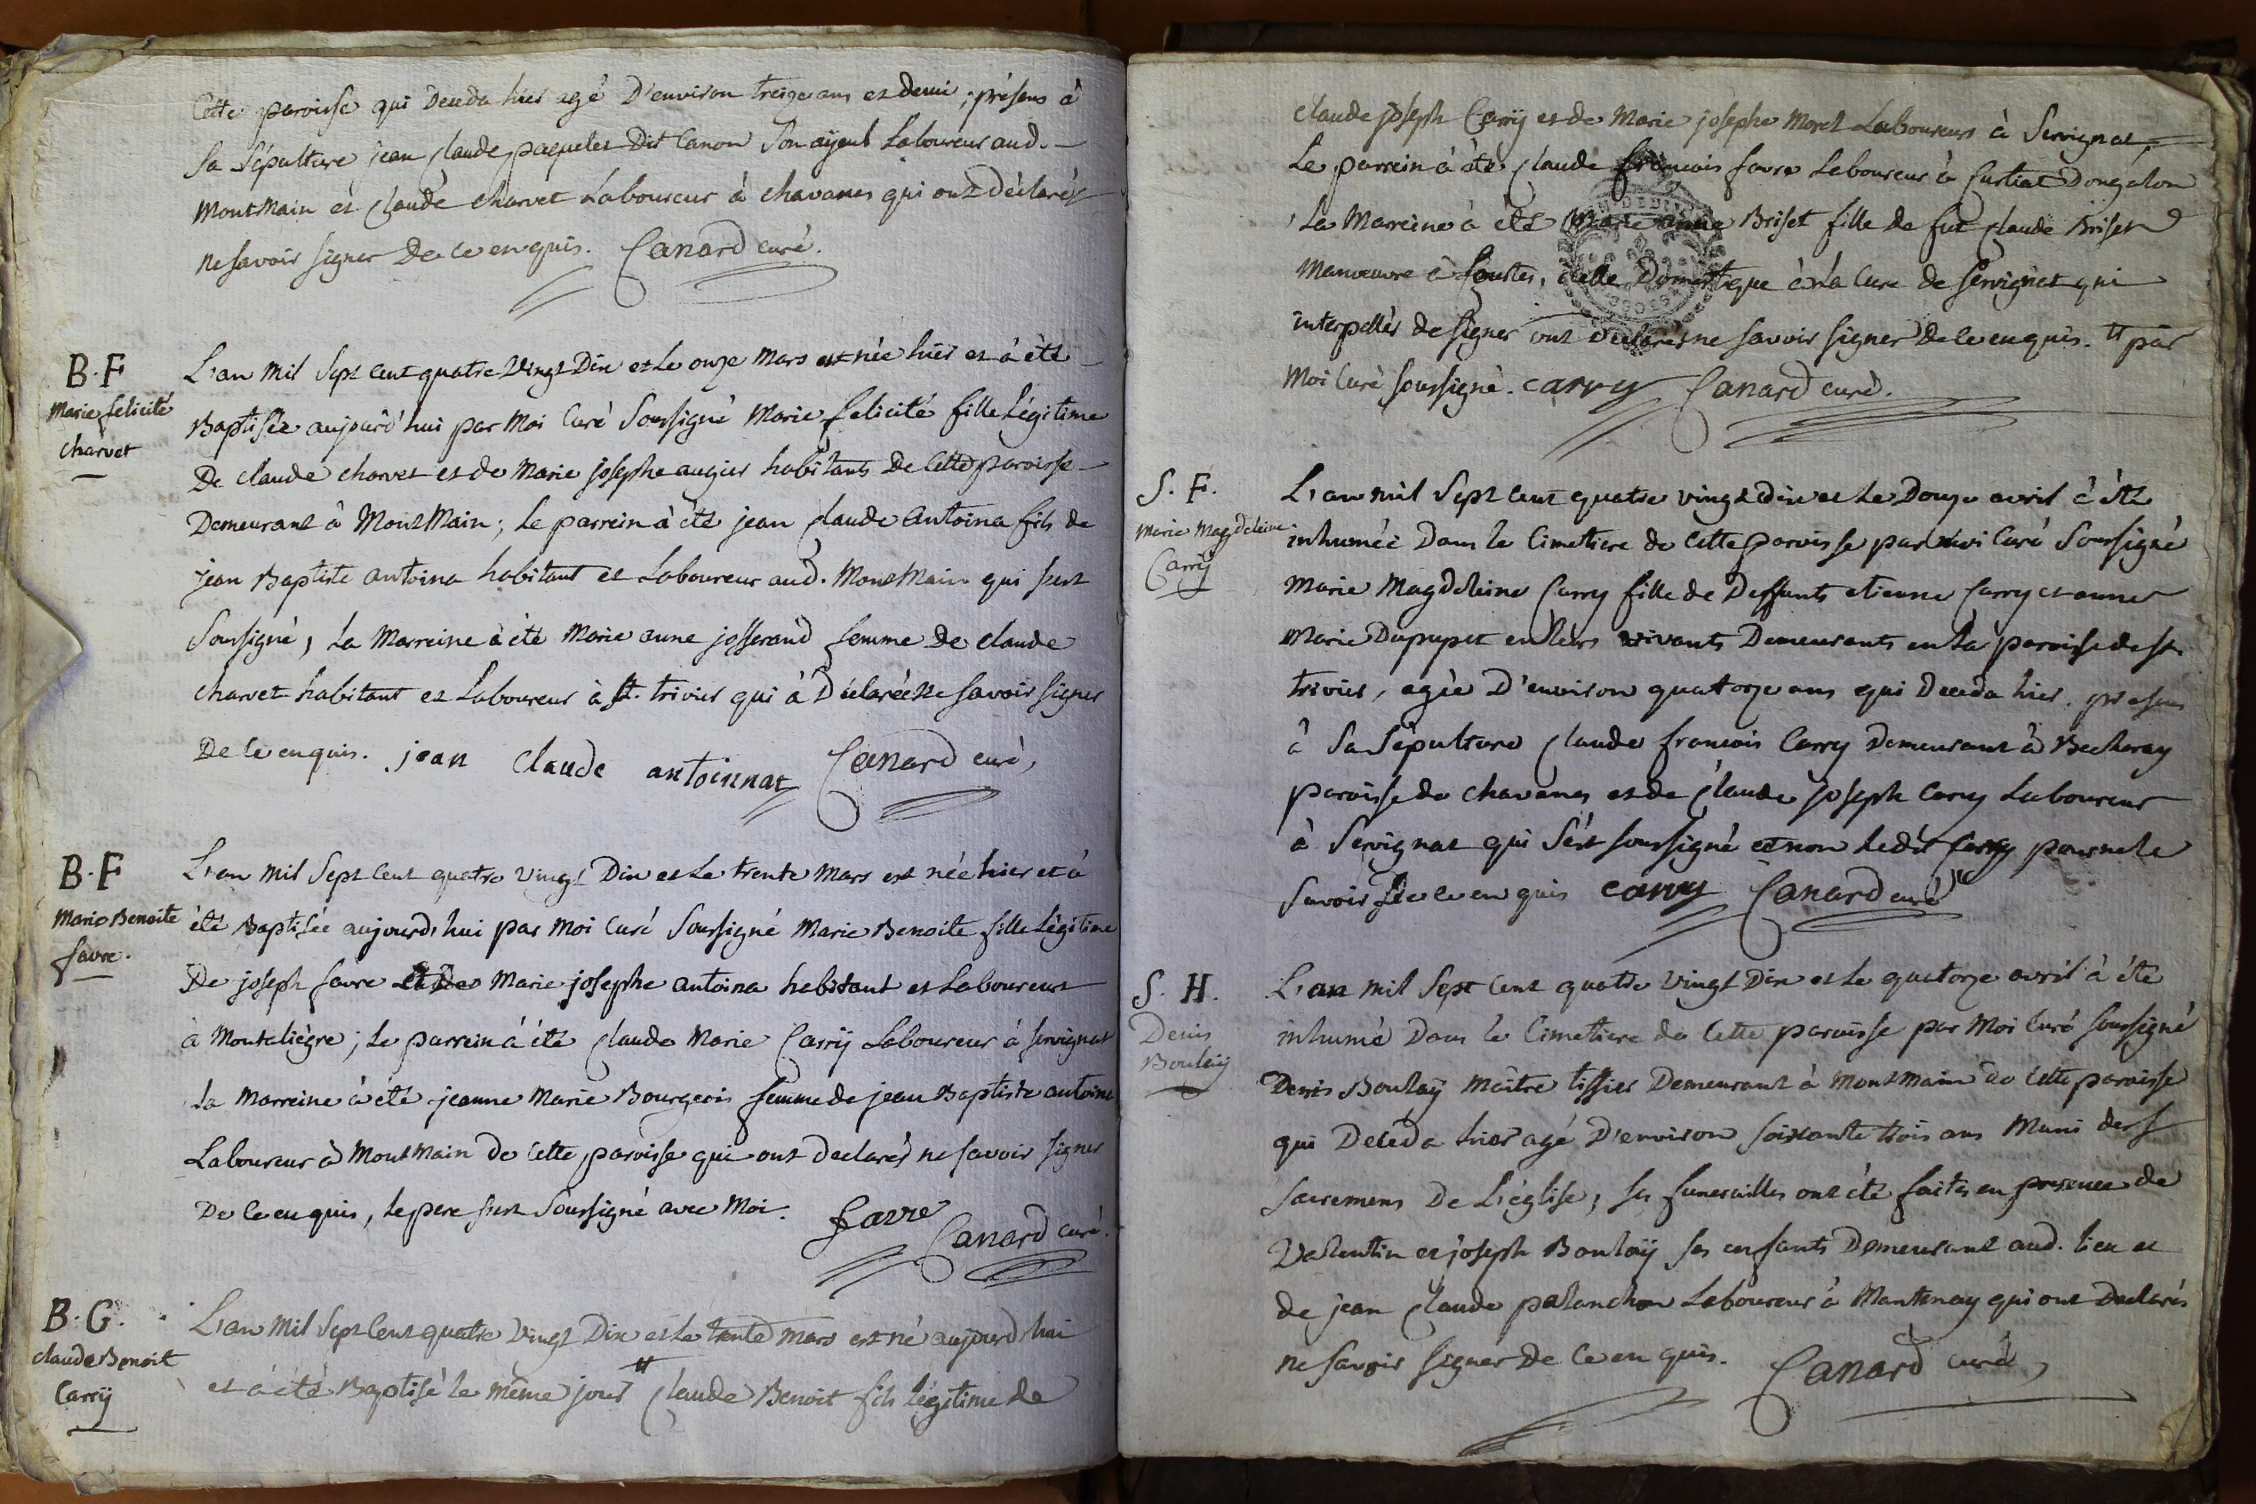 Cette paroisse qui deceda hier agé D'environ treize ans et demi ; présens à
sa sépulture jean claude paquelet Dit Canon Son ayeul Laboureur aud.
MontMain et claude charvet Laboureur à chavanes qui ont déclarés
ne savoir signer De ce enquis. Canard curé.
B. F
Marie felicité
charvet
L'an Mil Sept Cent quatre Vingt Dix et Le onze Mars est née hier et à été
Baptisée aujourd'hui par Moi Curé Soussigné Marie felicité fille Légitime
De claude charvet et de Marie josephe augier habitants De Cette paroisse
Demeurant à MontMain ; Le parrein à été jean claude Antoina fils de
jean Baptiste antoina habitant et Laboureur aud. MontMain qui s'est
Soussigné, La Marreine à été Marie anne josserand femme De claude
charvet habitant et Laboureur à St. trivier qui à Déclarée Ne savoir signer
De Ce enquis. jean claude antoinnat Canard curé,
B. F
Marie Benoite
favre.
L'an Mil Sept Cent quatre Vingt Dix et Le trente Mars est née hier et à
été Baptisée aujourd'hui par Moi Curé Soussigné Marie Benoite fille Légitime
De joseph favre et De Marie josephe antoina habitant et Laboureur
à Montaliègre ; Le parrein à été claude Marie Carrÿ Laboureur à servignat
La Marreine à été jeanne Marie Bourgeois femme de jean Baptiste antoina
Laboureur à MontMain de Cette paroisse qui ont declarés ne savoir signer
De Ce enquis, Le pere s'est Soussigné avec Moi. favre
Canard curé.
B. G.
claude Benoit
Carrÿ
L'an Mil Sept Cent quatre Vingt Dix et Le trente mars est né aujourd'hui
et à été Baptisé le même jour claude Benoit fils légitime de
claude joseph Carrÿ et de Marie josephe Morel Laboureurs à Servignat,
Le parrein à été claude françois favre Laboureur à Curtiat Dongalon
La Marreine à été Marie anne Briset fille de fut claude Briset
Manœuvre à, icelle Domestique à La Cure de Servignat qui
interpellés de signer ont declarés ne savoir signer de Ce enquis. par
Moi Curé soussigné. Carry Canard curé.
S. F.
Marie Magdeleine
Carrÿ
L'an mil Sept Cent quatre vingt Dix et Le Douze avril à été
inhumée Dans le Cimetiere de Cette paroisse par moi Curé Soussigné
Marie Magdeleine Carry fille de Deffunts etienne Carry et anne
Marie Dupupet en leurs vivants Demeurants en La paroisse de St.
trivier, agée D'environ quatorze ans qui Deceda hier. presens
à Sa Sépulture claude francois Carry Demeurant à Becheray
paroisse de chavanes et de claude joseph Carry Laboureur
à Servignat qui S'ést soussigné et non ledit Carry pour ne le
savoir De ce enquis carry Canard curé
S. H.
Denis
Boulaÿ
L'an mil Sept Cent quatre Vingt Dix et Le quatorze avril à été
inhumé Dans le Cimetiere de Cette paroisse par Moi Curé soussigné
Denis Boulaÿ Maitre tissier Demeurant à MontMain de Cette paroisse
qui Deceda hier agé D'environ soixante trois ans Muni des
sacremens De L'église ; ses funerailles ont été faites en presence de
Valentin et joseph Boulaÿ ses enfants Demeurant aud. lieu et
de jean claude palanchon Laboureur à Mantenay qui ont Declarés
ne savoir signer De Ce enquis. Canard curé,